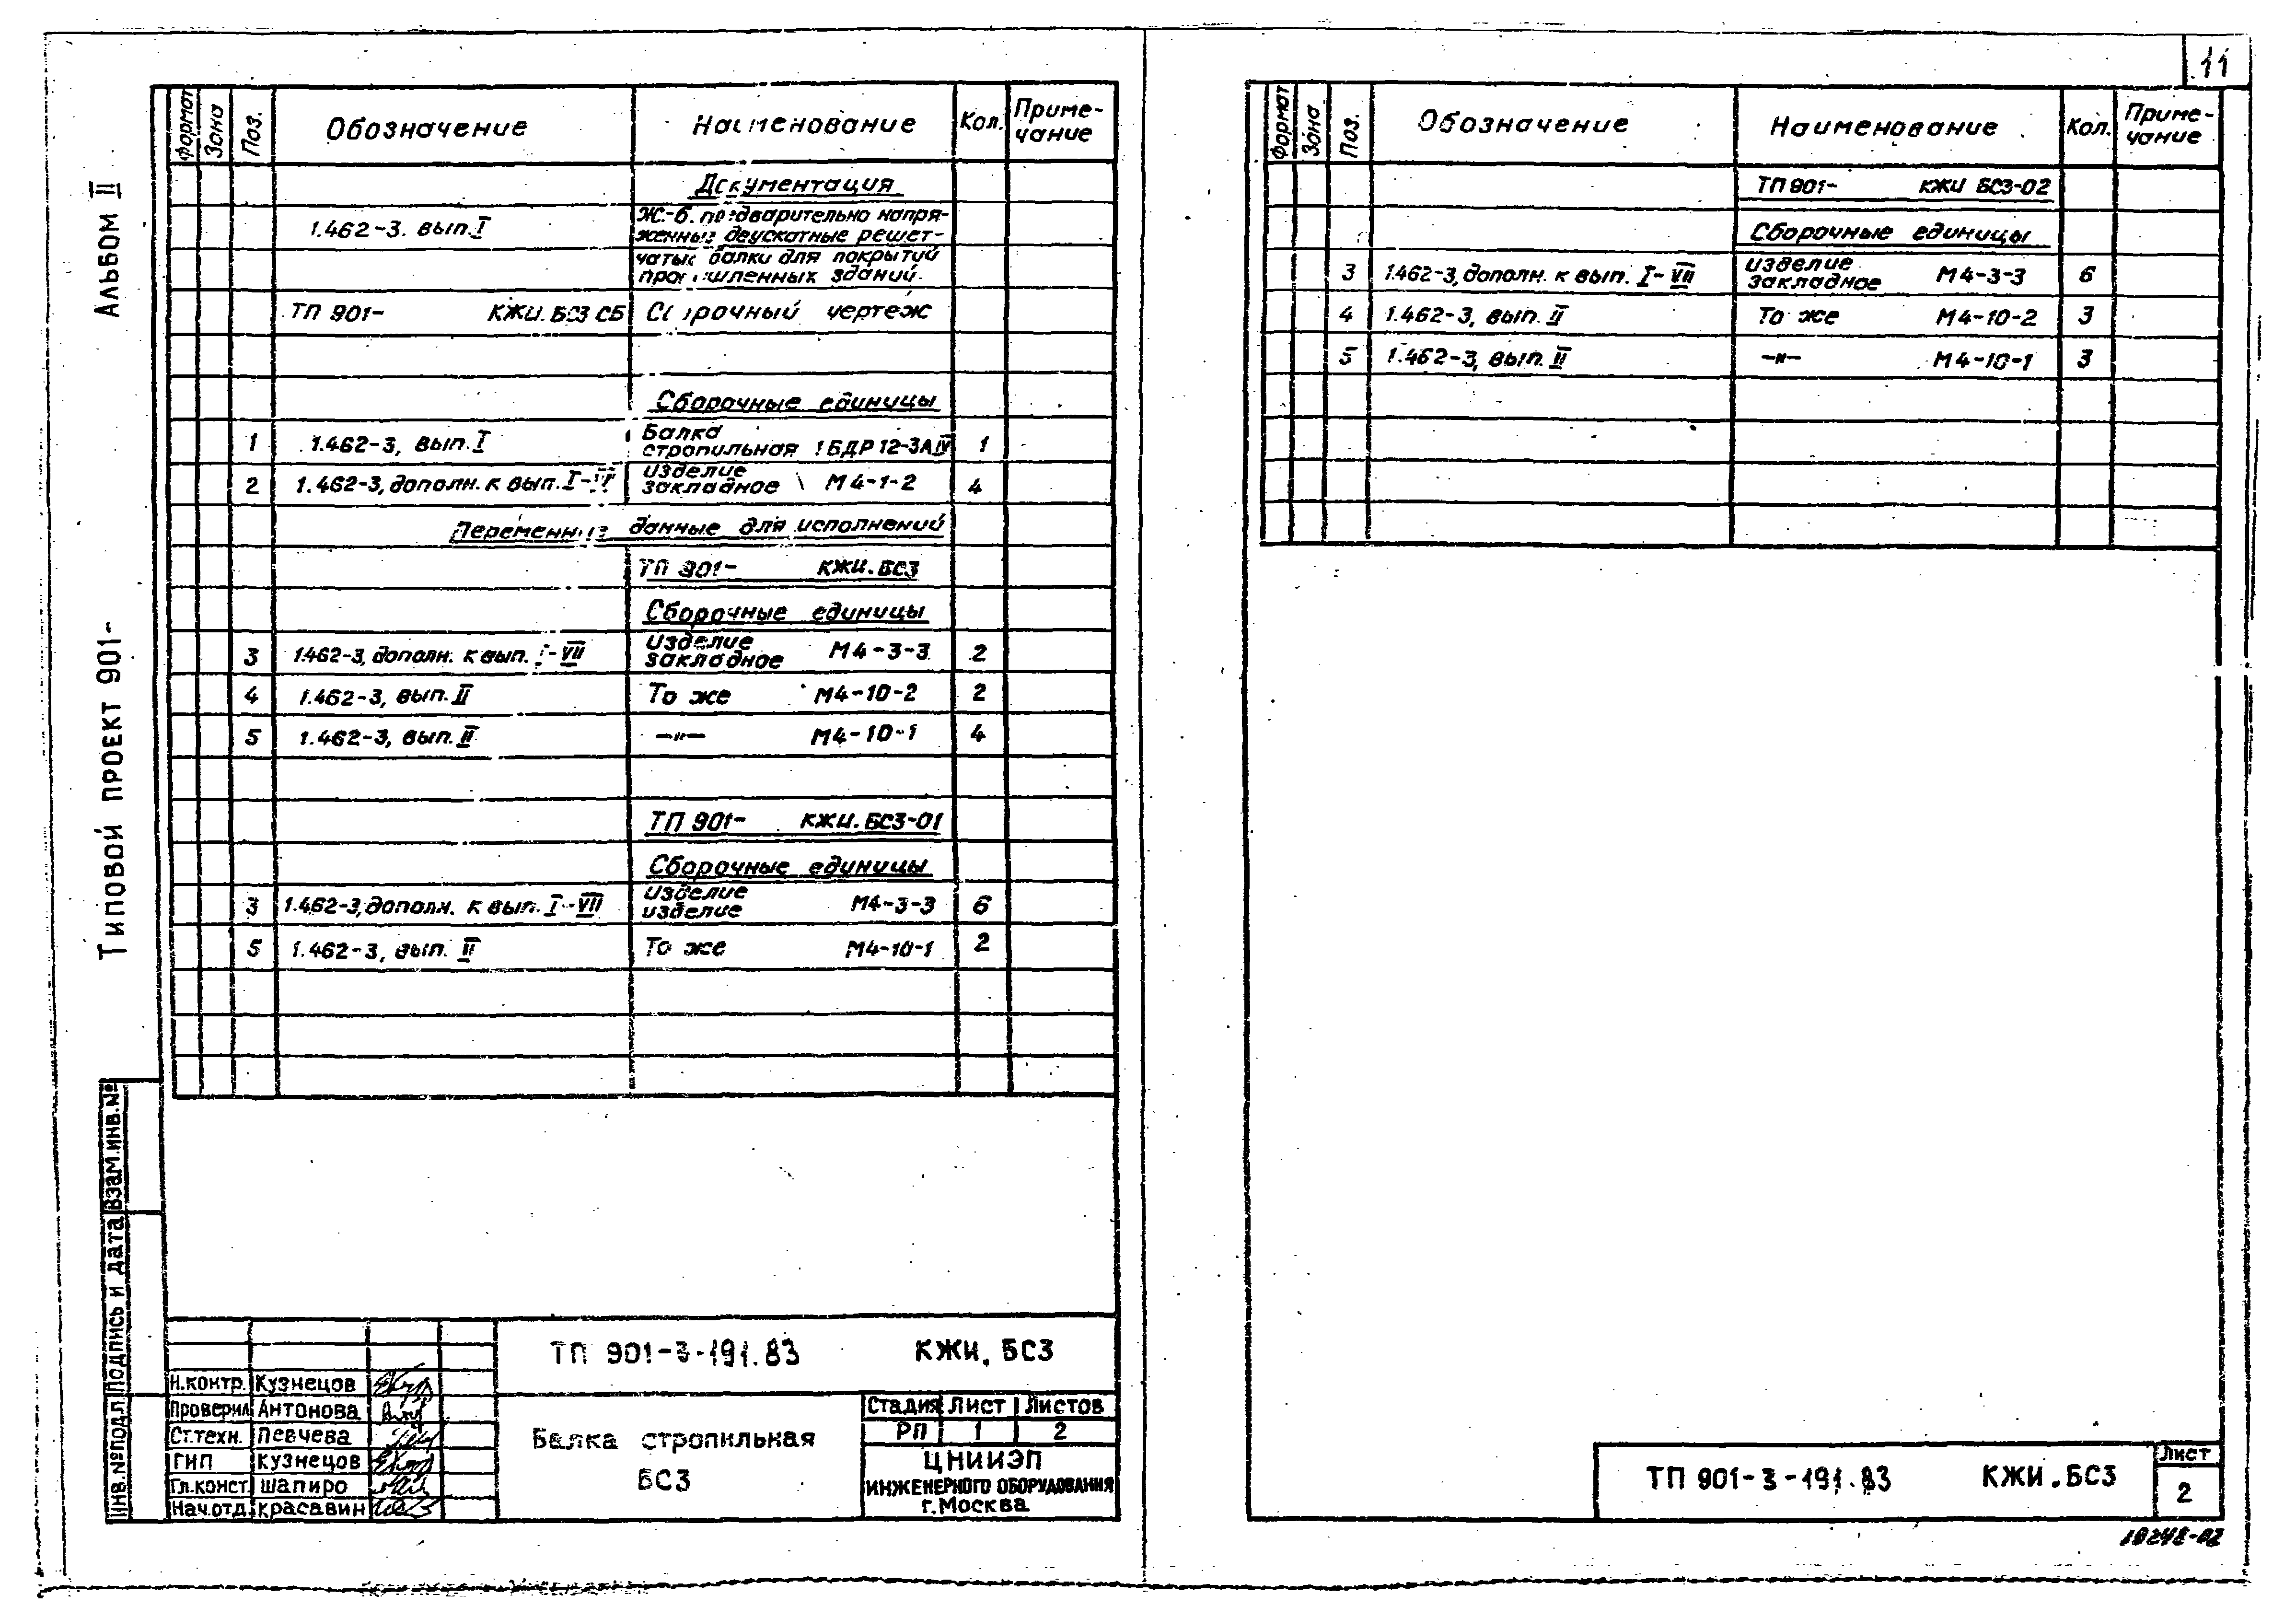 11
Альбом II
Типовой проект 901-
Формат Зона Поз. Обозначение Наименование Кол. Приме-
чание
Документация
1.462-3. вып. I Ж.-б. предварительно напря-
женные двускатные решет-
чатые балки для покрытий
промышленных зданий.
ТП 901- КЖИ.БС3 СБ Сборочный чертеж
Сборочные единицы
1 1.462-3, вып. I Балка
стропильная 1БДР 12-3АIV 1
2 1.462-3, дополн. к вып. I-VII изделие
закладное М4-1-2 4
Переменные данные для исполнений
ТП 901- КЖИ.БС3
Сборочные единицы
3 1.462-3, дополн. к вып. I-VII изделие
закладное М4-3-3 2
4 1.462-3, вып. II То же М4-10-2 2
5 1.462-3, вып. II —"— М4-10-1 4
ТП 901- КЖИ.БС3-01
Сборочные единицы
3 1.462-3, дополн. к вып. I-VII изделие
изделие М4-3-3 6
5 1.462-3, вып. II То же М4-10-1 2
Инв.№подл. Подпись и дата Взам.инв.№
ТП 901-3-191.83 КЖИ. БС3
Н.контр. Кузнецов
Проверил Антонова
Ст.техн. Певчева
ГИП Кузнецов
Гл.конст. Шапиро
Нач.отд. Красавин
Балка стропильная
БС3
Стадия Лист Листов
РП 1 2
ЦНИИЭП
ИНЖЕНЕРНОГО ОБОРУДОВАНИЯ
г.Москва
Формат Зона Поз. Обозначение Наименование Кол. Приме-
чание
ТП 901- КЖИ БС3-02
Сборочные единицы
3 1.462-3, дополн. к вып. I-VII изделие
закладное М4-3-3 6
4 1.462-3, вып. II То же М4-10-2 3
5 1.462-3, вып. II —"— М4-10-1 3
ТП 901-3-191.83 КЖИ.БС3
Лист
2